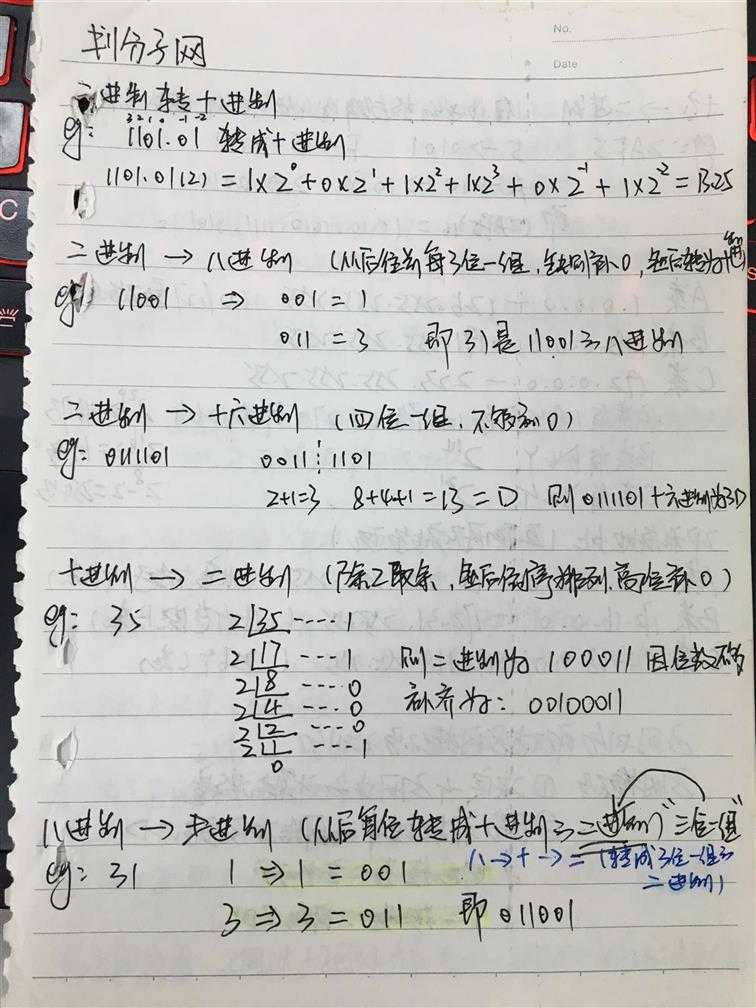 划分子网
No.
Date
二进制转十进制
3 2 1 0 -1 -2
eg: 1101.01 转成十进制
1101.01(2) = 1×2⁰+0×2¹+1×2²+1×2³+0×2⁻¹+1×2⁻²=13.25
二进制 → 八进制 (从后往前每3位一组,缺则补0,然后转为十进制)
eg: 11001 ⇒ 001 = 1
011 = 3 即31是11001的八进制
二进制 → 十六进制 (四位一组,不够补0)
eg: 0111101 0011 1101
2+1=3 8+4+1=13=D 则0111101十六进制为3D
十进制 → 二进制 (除2取余,然后倒序排列,高位补0)
eg: 35 2|35 ---- 1
2|17 ---- 1 则二进制为100011 因位数不够
2|8 ---- 0 补齐为: 00100011
2|4 ---- 0
2|2 ---- 0
2|1 ---- 1
0
八进制 → 二进制 (从后每位转成十进制→二进制) "三位一组"
eg: 31 1 ⇒ 1 = 001 八→十→二(转成3位一组的
二进制)
3 ⇒ 3 = 011 即011001
C